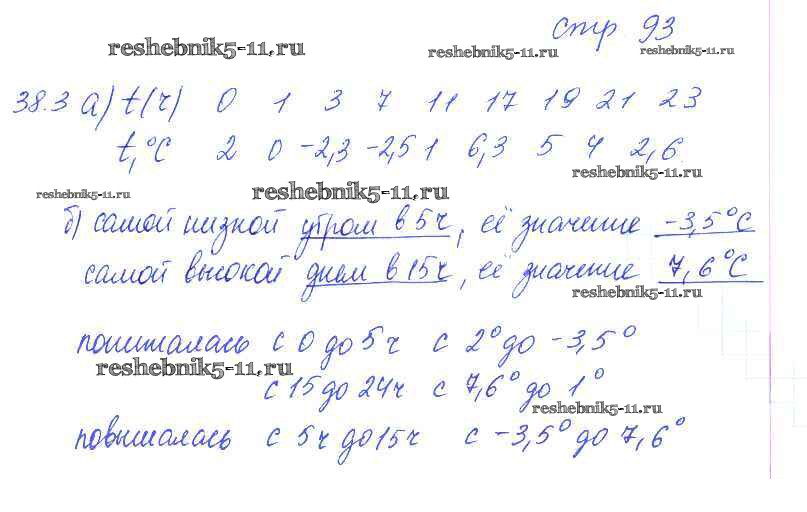 стр 93
reshebnik5-11.ru reshebnik5-11.ru reshebnik5-11.ru
38.3 а) t(ч) 0 1 3 7 11 17 19 21 23
t,°C 2 0 -2,3 -2,5 1 6,3 5 4 2,6
reshebnik5-11.ru
reshebnik5-11.ru reshebnik5-11.ru
б) самой низкой утром в 5ч, её значение -3,5°C
самой высокой днем в 15ч, её значение 7,6°C
reshebnik5-11.ru
понижалась с 0 до 5ч с 2° до -3,5°
reshebnik5-11.ru
с 15 до 24ч с 7,6° до 1°
reshebnik5-11.ru
повышалась с 5ч до 15ч с -3,5° до 7,6°